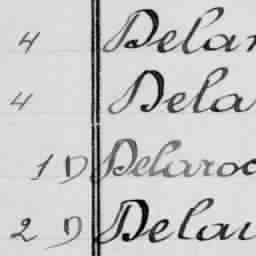 4 Delar
4 Dela
1 D Delaroc
2 D Delau